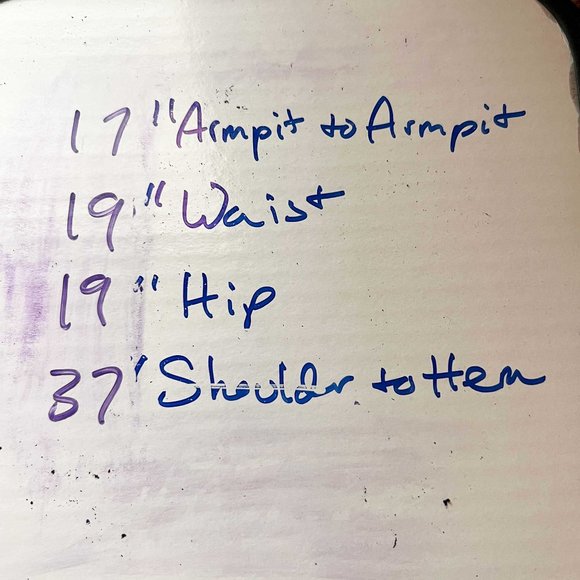 17" Armpit to Armpit
19" Waist
19" Hip
37' Shoulder to Hem